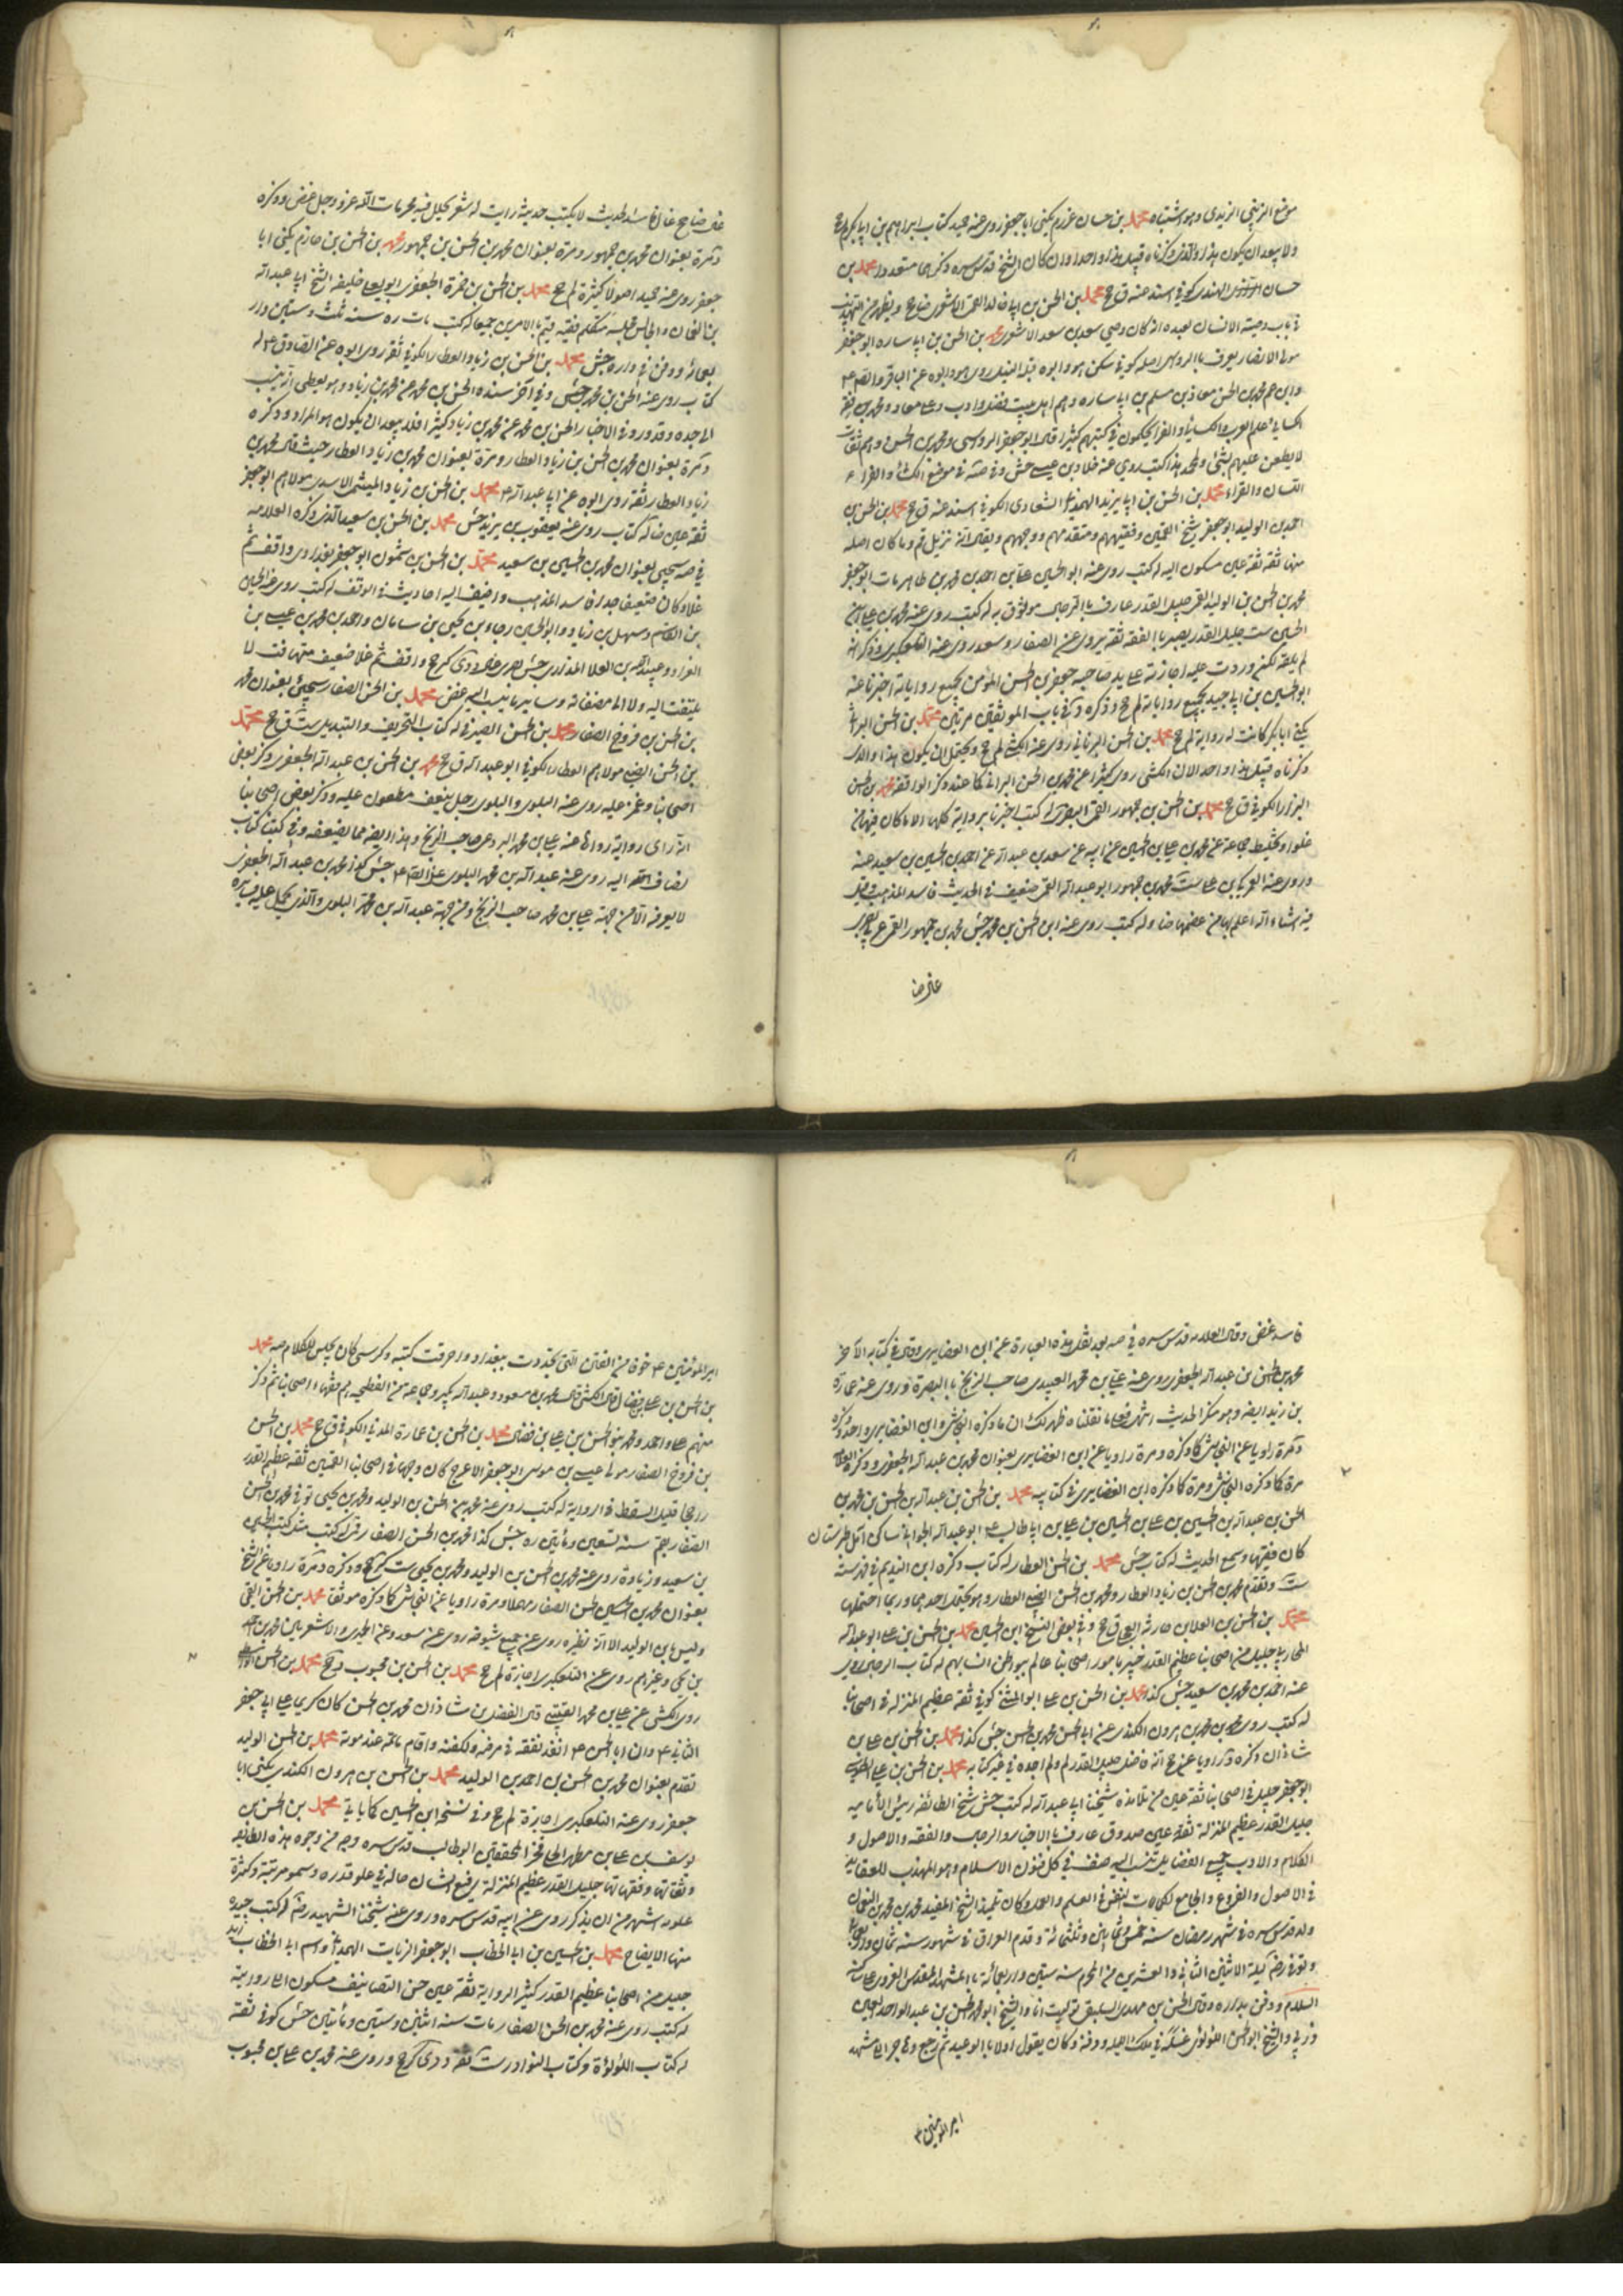 موضع الزينبي الزيدي وهو اشتباه محمد بن حسان عرزم يكنى ابا جعفر روى عنه حميد كتاب ابراهيم بن ابي بكر لم جخ
ولا يبعد ان يكون هذا والذي ذكرناه قبيل هذا واحدا وان كان الشيخ قدس سره ذكرهما متعددا محمد بن
حسان الهندي كوفي اسند عنه ق جخ محمد بن الحسن بن ابي خالد القمي الاشعري ضا جخ ويظهر من التهذيب
في باب وصية الانسان لعبده انه كان وصي سعد بن سعد الاشعري محمد بن الحسن بن ابي ساره ابو جعفر
مولى الانصار يعرف بالرواسي اصله كوفي سكن هو وابوه قبله النيل روى هو وابوه عن الباقر والصادق
وابن عم محمد بن الحسن معاذ بن مسلم بن ابي ساره وهم اهل بيت فضل وادب وعلى معاذ ومحمد بن تفقه
الكسائي علم العرب والكسائي والفراء يحكون في كتبهم كثيرا قال ابو جعفر الرواسي ومحمد بن الحسن وهم ثقات
لا يطعن عليهم بشئ ولمحمد هذا كتب روى عنه خلاد بن عيسى جش وفي صه في موضع الكسائي والفراء
اللسان والقراء محمد بن الحسن بن ابي يزيد الهمداني الشعاري الكوفي اسند عنه ق جخ محمد بن الحسن بن
احمد بن الوليد ابو جعفر شيخ القميين وفقيههم ومتقدمهم ووجههم ويقال انه نزيل قم وما كان اصله
منها ثقة ثقة عين مسكون اليه له كتب روى عنه ابو الحسين علي بن احمد بن محمد بن طاهر مات ابو جعفر
محمد بن الحسن بن الوليد القمي جليل القدر عارف بالرجال موثوق به له كتب روى عنه محمد بن علي بن
الحسين ست جليل القدر بصير بالفقه ثقة يروى عن الصفار وسعد روى عنه التلعكبري وذكر انه
لم يلقه لكن وردت عليه اجازته على يد صاحبه جعفر بن الحسن المؤمن بجميع رواياته اخبرنا عنه
ابو الحسين بن ابي جيد بجميع رواياته لم جخ وذكره د في باب الموثقين مرتين محمد بن الحسن البراثي
يكنى ابا بكر كانت له رواية لم جخ محمد بن الحسن البرناني روى عنه الكشي لم جخ ويحتمل ان يكون هذا والذي
ذكرناه قبيل هذا واحدا لان الكشي روى كثيرا عن محمد بن الحسن البراثي كما عند ذكر الواقفة محمد بن الحسن
البزاز الكوفي ق جخ محمد بن الحسن بن جمهور القمي البصري له كتب اخبرنا برواية كلها الا ما كان فيها من
غلو او تخليط جماعة عن محمد بن علي بن الحسين عن ابيه عن سعد بن عبد الله عن احمد بن الحسين بن سعيد عنه
وروى عنه العمركي بن علي ست محمد بن جمهور ابو عبد الله القمي ضعيف في الحديث فاسد المذهب قيل
فيه اشياء الله اعلم بها من عظمها ضا وله كتب روى عنه ابن الحسن بن محمد جش محمد بن جمهور القمي عربي بصري
غال ضا
غال ضا جخ غال فاسد الحديث لا يكتب حديثه رايت له شعر يحلل فيه محرمات الله عز وجل غض وذكره
د مرة بعنوان محمد بن جمهور ومرة بعنوان محمد بن الحسن بن جمهور محمد بن الحسن بن حازم يكنى ابا
جعفر روى عنه حميد اصولا كثيرة لم جخ محمد بن الحسن بن حمزة الجعفري ابو يعلى خليفة الشيخ ابي عبد الله
بن النعمان والجالس مجلسه متكلم فقيه قيم بالامرين جميعا له كتب مات ره سنة ثلث وستين وار
بعمائة ودفن في داره جش محمد بن الحسن بن زياد العطار الكوفي ثقة روى ابوه عن الصادق ع له
كتاب روى عنه الحسن بن محمد جش وفي آخر سنده الحسن بن محمد عن محمد بن زياد وهو يعطى انه ينسب
الى جده وقد ورد في الاخبار الحسن بن محمد عن محمد بن زياد كثيرا فلا يبعد ان يكون هو المراد وذكره
د مرة بعنوان محمد بن الحسن بن زياد العطار ومرة بعنوان محمد بن زياد العطار حيث قال محمد بن
زياد العطار ثقة روى ابوه عن ابي عبد الله ع محمد بن الحسن بن زياد الميثمي الاسدي مولاهم ابو جعفر
ثقة عين ضا له كتاب روى عنه يعقوب بن يزيد جش محمد بن الحسن بن سعيد الذي ذكره العلامه
في صه سيجئ بعنوان محمد بن الحسين بن سعيد محمد بن الحسن بن شمون ابو جعفر بغدادي واقف ثم
غلا وكان ضعيفا جدا فاسد المذهب واضيف اليه احاديث في الوقف له كتب روى عنه الحسين
بن القاسم وسهل بن زياد وابو الحسين رجاء بن يحيى بن سامان واحمد بن محمد بن عيسى بن
الغراد وعبيد الله بن العلا المذاري جش بصري غال دي كر جخ واقف ثم غلا ضعيف متهافت لا
يلتفت اليه ولا الى مصنفاته وسائر ما ينسب اليه غض محمد بن الحسن الصفار سيجئ بعنوان محمد
بن الحسن بن فروخ الصفار محمد بن الحسن الصيرفي له كتاب التحريف والتبديل ست ق جخ محمد
بن الحسن الضبي مولاهم العطار الكوفي ابو عبد الله ق جخ محمد بن الحسن بن عبد الله الجعفري ذكر بعض
اصحابنا وغمز عليه روى عنه البلوى والبلوى رجل ضعيف مطعون عليه وذكر بعض اصحابنا
انه راى رواية رواها عنه علي بن محمد البردعي صاحب الزنج وهذا ايضا مما يضعفه وفي كتبنا كتاب
يضاف اليه روى عنه عبد الله بن محمد البلوى عن الصادق ع جش كوز محمد بن عبد الله الجعفري
لا يعرف الا من جهة علي بن محمد صاحب الزنج ومن جهة عبد الله بن محمد البلوى والذي يحمل عليه سائره
فاسد غض وقال العلامه قدس سره في صه بعد نقل هذه العبارة عن ابن الغضايري وقال في كتابه الآخر
محمد بن الحسن بن عبد الله الجعفري روى عنه علي بن محمد العبيدي صاحب الزنج بالبصرة وروى عنه عمارة
بن زيد ايضا وهو منكر الحديث انتهى فعلى ما نقلناه ظهر لك ان ما ذكره النجاشي وابن الغضايري واحد وذكره
د مرة راويا عن النجاشي كما ذكره ومرة راويا عن ابن الغضايري بعنوان محمد بن عبد الله الجعفري وذكره العلامة
مرة كما ذكره النجاشي ومرة كما ذكره ابن الغضايري في كتابيه محمد بن الحسن بن عبد الله بن الحسن بن محمد بن
الحسن بن عبد الله بن الحسين بن علي بن الحسين بن علي بن ابي طالب ع ابو عبد الله الجواني ساكن آمل طبرستان
كان فقيها وسمع الحديث له كتاب جش محمد بن الحسن العطار له كتاب ذكره ابن النديم في فهرسته
ست وتقدم محمد بن الحسن بن زياد العطار ومحمد بن الحسن الضبي العطار وهو يحتمل احدهما وربما احتملها
محمد بن الحسن بن العلا بن حارثه ق جخ وفي بعض النسخ ابن الحسين محمد بن الحسن بن علي ابو عبد الله
المحاربي جليل من اصحابنا عظيم القدر خبير بامور اصحابنا عالم ببواطن انسابهم له كتاب الرجال روى
عنه احمد بن محمد بن سعيد جش كذا محمد بن الحسن بن علي ابو المثنى كوفي ثقة عظيم المنزلة في اصحابنا
له كتب روى محمد بن هرون الكندي عن ابي الحسن محمد بن الحسن جش كذا محمد بن الحسن بن علي بن
شاذان ذكره د راويا عن جخ انه فاضل جليل القدر لم ولم اجده في غير كتابه محمد بن الحسن بن علي الطوسي
ابو جعفر جليل في اصحابنا ثقة عين من تلامذه شيخنا ابي عبد الله له كتب جش شيخ الطائفة رئيس الامامية
جليل القدر عظيم المنزلة ثقة عين صدوق عارف بالاخبار والرجال والفقه والاصول و
الكلام والادب جميع الفضايل تنسب اليه صنف في كل فنون الاسلام وهو المهذب للعقايد
في الاصول والفروع والجامع لكمالات النفس في العلم والعمل وكان تلميذ الشيخ المفيد محمد بن محمد بن النعمان
ولد قدس سره في شهر رمضان سنة خمس وثمانين وثلثمائة وقدم العراق في شهور سنة ثمان واربعمائة
وتوفي رض ليلة الاثنين الثاني والعشرين من المحرم سنة ستين واربعمائة بالمشهد المقدس الغروي على ساكنه
السلام ودفن بداره وقال الحسن بن مهدي السليقي توليت انا والشيخ ابو محمد الحسن بن عبد الواحد العين
زربي والشيخ ابو الحسن اللؤلؤي غسله في تلك الليلة ودفنه وكان يقول اولا بالوعيد ثم رجع وهاجر الى مشهد
امير المؤمنين ع
امير المؤمنين ع خوفا من الفتن التي تجددت ببغداد واحرقت كتبه وكرسي كان يجلس للكلام صه محمد
بن الحسن بن علي بن فضال قال الكشي قال محمد بن مسعود وعبد الله بن بكير وجماعة من الفطحيه هم فقهاء اصحابنا ثم ذكر
منهم علي واحمد ومحمد بنو الحسن بن علي بن فضال محمد بن الحسن بن عمارة المدني الكوفي ق جخ محمد بن الحسن
بن فروخ الصفار مولى عيسى بن موسى ابو جعفر الاعرج كان وجها في اصحابنا القميين ثقة عظيم القدر
راجحا قليل السقط في الرواية له كتب روى عنه محمد بن الحسن بن الوليد ومحمد بن يحيى توفي محمد بن الحسن
الصفار بقم سنة تسعين ومأتين ره جش كذا محمد بن الحسن الصفار قمي له كتب مثل كتب الحسين
بن سعيد وزيادة روى عنه محمد بن الحسن بن الوليد ومحمد بن يحيى ست كر جخ وذكره د مرة راويا عن الشيخ
بعنوان محمد بن الحسن الصفار مهملا ومرة راويا عن النجاشي كما ذكره موثقا محمد بن الحسن القمي
وليس بابن الوليد الا انه نظيره روى عن جميع شيوخه روى عن سعد وعن الحميري والاشعريين محمد بن احمد
بن يحيى وغيرهم روى عنه التلعكبري اجازة لم جخ محمد بن الحسن بن محبوب د جخ محمد بن الحسن الواسطي
روى الكشي عن علي بن محمد القتيبي قال الفضل بن شاذان محمد بن الحسن كان كريما على ابي جعفر
الثاني ع وان ابا الحسن ع انفذ نفقته في مرضه ولكفنه واقام ماتمه عند موته محمد بن الحسن الوليد
تقدم بعنوان محمد بن الحسن بن احمد بن الوليد محمد بن الحسن بن هرون الكندي يكنى ابا
جعفر روى عنه التلعكبري اجازة لم جخ وفي نسخه ابن الحسين كما ياتي محمد بن الحسن بن
يوسف بن علي بن مطهر الحلي فخر المحققين ابو طالب قدس سره وجه من وجوه هذه الطايفه
وثقاتها وفقهائها جليل القدر عظيم المنزلة رفيع الشان حاله في علو قدره وسمو مرتبته وكثرة
علومه اشهر من ان يذكر روى عن ابيه قدس سره وروى عنه شيخنا الشهيد رض له كتب جيده
منها الايضاح محمد بن الحسين بن ابي الخطاب ابو جعفر الزيات الهمداني واسم ابي الخطاب زيد
جليل من اصحابنا عظيم القدر كثير الرواية ثقة عين حسن التصانيف مسكون الى روايته
له كتب روى عنه محمد بن الحسن الصفار مات سنة اثنتين وستين ومأتين جش كوفي ثقة
له كتاب اللؤلؤة وكتاب النوادر ست ثقه د دي كر جخ وروى عنه محمد بن علي بن محبوب